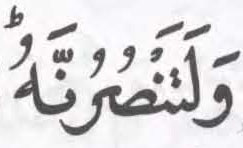 وَلَتَنْصُرُنَّهٗؕ